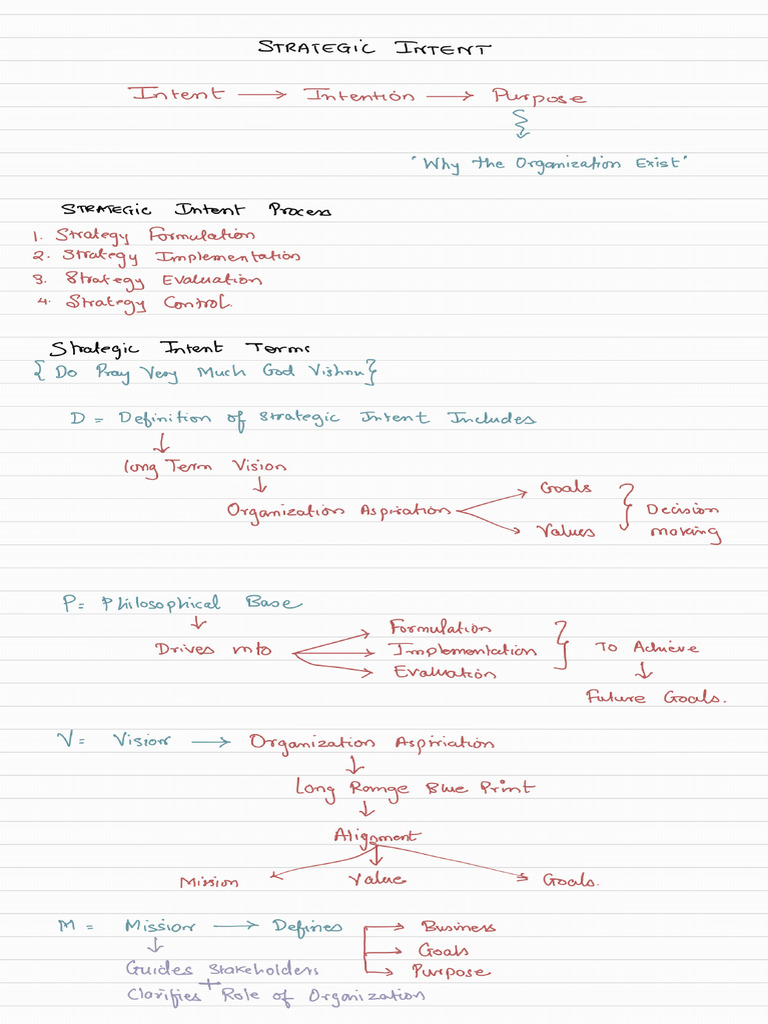 STRATEGIC INTENT
Intent → Intention → Purpose
"Why the Organization Exist"
STRATEGIC Intent Process
1. Strategy Formulation
2. Strategy Implementation
3. Strategy Evaluation
4. Strategy Control.
Strategic Intent Terms
{ Do Pray Very Much God Vishnu }
D = Definition of Strategic Intent Includes
Long Term Vision
Goals
Organization Aspiration
Decision
Values
making
P = Philosophical Base
Formulation
Drives into
Implementation
To Achieve
Evaluation
Future Goals.
V = Vision → Organization Aspiriation
Long Range Blue Print
Alignment
Mission Value Goals.
M = Mission → Defines → Business
Goals
Guides Stakeholders
Purpose
+
Clarifies Role of Organization